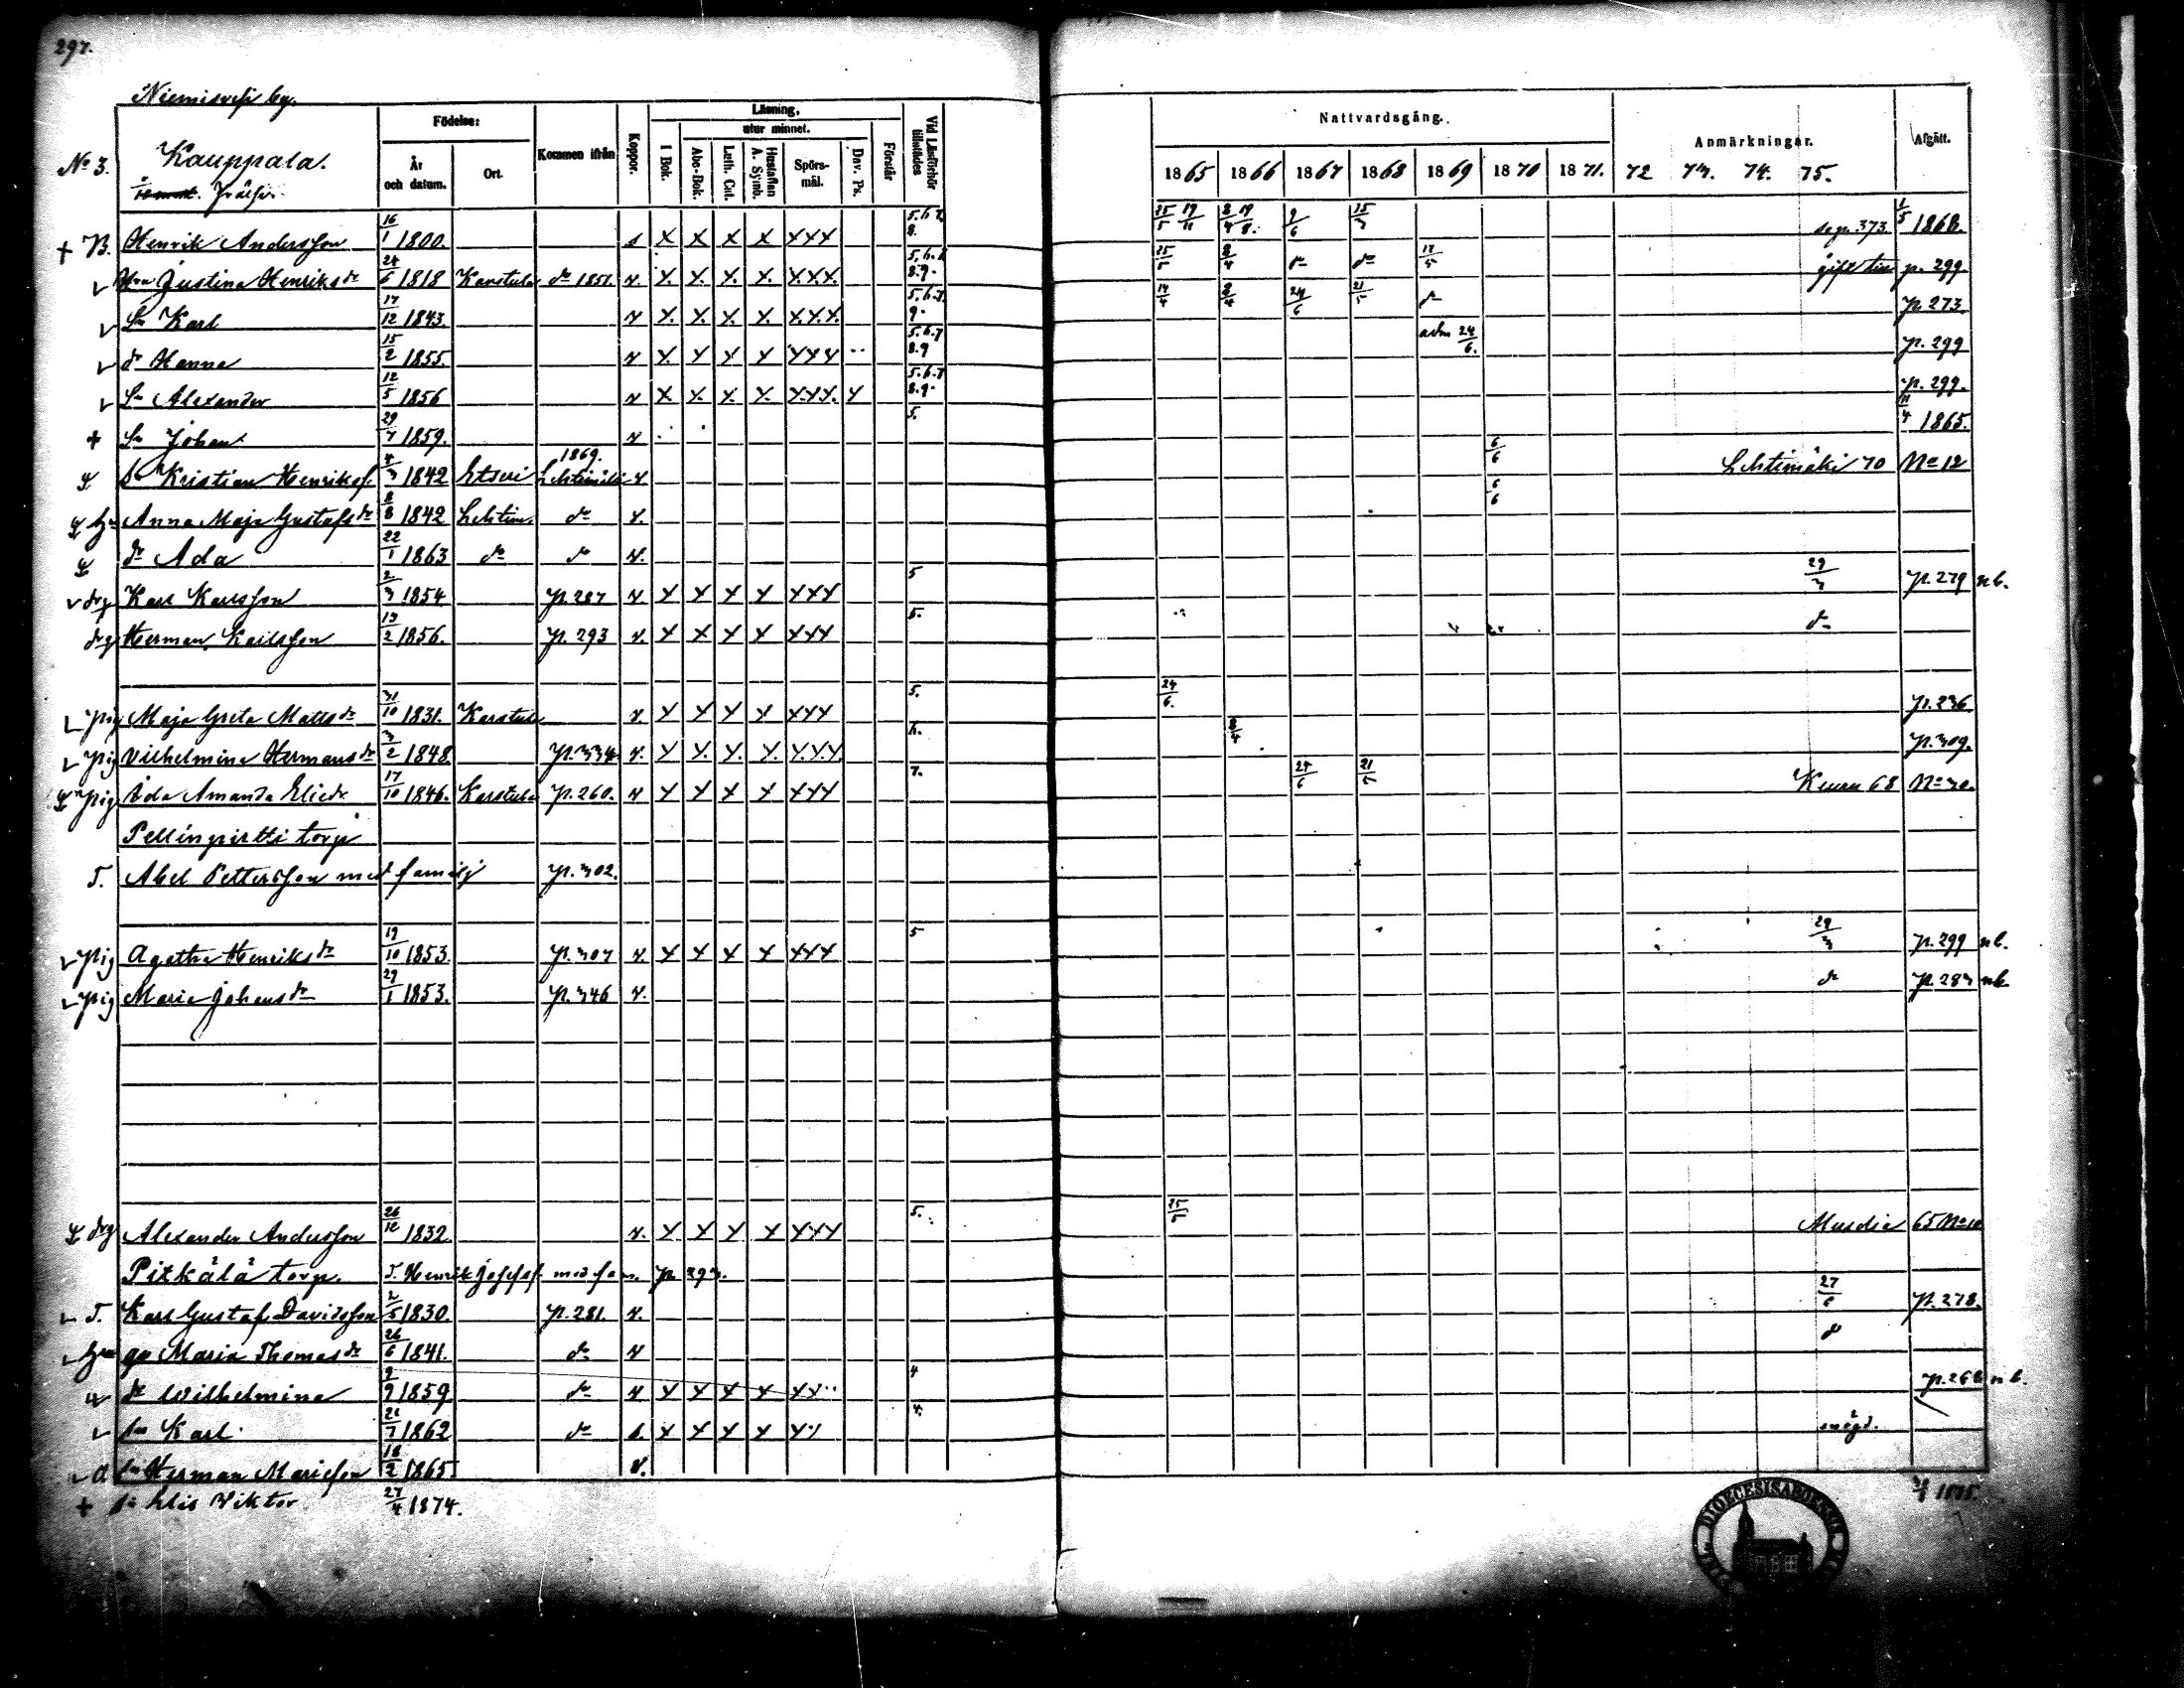 297.
Niemisvesi by.
Födelse: Kommen ifrån Koppor. Läsning, utur minnet. Vid Läsförhör tillstädes Nattvardsgång. Anmärkningar. Afgått.
År och datum. Ort. I Bok. Abc-Bok. Luth. Cat. Hustaflan A. Symb. Spörsmål. Dav. Ps. Förstår 1865 1866 1867 1868 1869 1870 1871. 72 73. 74. 75.
No 3. Kauppala.
+ B. Henrik Andersson 16/1 1800. s X X X X XXX 5.6.7. 8. 25/5 19/11 8/4 19/8. 9/6 15/3 se p. 373 1/5 1868.
Hru Justina Henriksdr 24/6 1818 Karstula dr 1851. v. X. X. X. X. X.X.X. 5.6.7 8.9. 25/5 8/4 dr dr 17/5 gift p. 299.
Sn Karl 17/12 1843. v X. X. X. X. X.X.X. 5.6.7. 9. 17/4 8/4 24/6 21/5 dr p. 273.
dr Hanna 15/2 1855. v X X X X XXX 5.6.7 8.9 adm 24/6. p. 299
Sn Alexander 12/5 1856 v X X. X. X. X.X.X. X 5.6.7 8.9. p. 299.
+ Sn Johan 29/7 1859. v 5. 11/4 1865.
Kristian Henrikss. 4/3 1842 Etseri 1869. Lehtimäki v 6/6 Lehtimäki 70 No 12
Anna Maja Gustafsdr 8/8 1842 Lehtim. dr v. 6/6
dr Ada 22/1 1863 dr dr v.
drg Karl Karlsson 2/3 1854 p. 287 v X X X X XXX 5 29/3 p. 279 nb.
drg Herman Karlsson 13/2 1856. p. 293 v. X X X X XXX 5. dr
pig Maja Greta Mattsdr 31/10 1831. Karstula v X X X X XXX 5. 24/6. p. 236
pig Vilhelmina Hermansdr 3/2 1848. p. 334 v. X X. X. X. X.X.X. 6. 8/4 p. 309.
pig Ida Amanda Eliedr 17/10 1846. Karstula p. 260. v X X X X XXX 7. 24/6 21/5 Keuru 68 No 30.
Pellinpirtti torp
T. Abel Pettersson med familj p. 302.
pig Agatha Henriksdr 19/10 1853. p. 307 v X X X X XXX 5 29/3 p. 299 nb.
pig Maria Johansdr 29/1 1853. p. 346 v. dr p. 283 nb
drg Alexander Andersson 26/12 1832. v. X X X X XXX 5. 25/5 65 No 10
Pitkälä torp. T. Henrik Josefss. med fam. p 293.
T. Karl Gustaf Davidsson 2/5 1830. p. 281. v. 27/6 p. 278.
Maria Thomasdr 26/6 1841. dr v dr
dr Wilhelmina 9/9 1859 dr v X X X X XX 4 p. 268 nb.
sn Karl 21/7 1862 dr s. X X X X X 4.
sn Herman Mariesson 18/2 1865 v.
+ sn Elis Viktor 27/4 1874. 1875.
DIOECESIS ABOENSIS